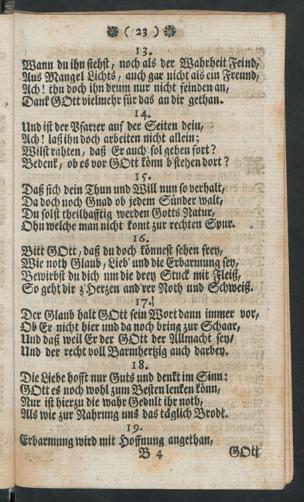 ❋ ( 23 ) ❋
13.
Wann du ihn siehst, noch als der Wahrheit Feind,
Aus Mangel Lichts, auch gar nicht als ein Freund,
Ach! thu doch ihn drum nur nicht feinden an,
Dank GOtt vielmehr für das an dir gethan.
14.
Und ist der Pfarrer auf der Seiten dein,
Ach! laß ihn doch arbeiten nicht allein;
Wilst rahten, daß Er auch sol gehen fort?
Bedenk, ob es vor GOtt könn b'stehen dort?
15.
Daß sich dein Thun und Will nun so verhalt,
Da doch noch Gnad ob jedem Sünder walt,
Du solst theilhafftig werden Gotts Natur,
Ohn welche man nicht komt zur rechten Spur.
16.
Bitt GOtt, daß du doch könnest sehen frey,
Wie noth Glaub, Lieb' und die Erbarmung sey,
Bewirbst du dich um die drey Stuck mit Fleiß,
So geht dir z'Herzen andrer Noth und Schweiß.
17.
Der Glaub halt GOtt sein Wort dann immer vor,
Ob Er nicht hier und da noch bring zur Schaar,
Und daß weil Er der GOtt der Allmacht sey/
Und der recht voll Barmhertzig auch darbey.
18.
Die Liebe hofft nur Guts und denkt im Sinn:
GOtt es noch wohl zum Besten lenken könn,
Nur ist hierzu die wahr Gedult ihr noth,
Als wie zur Nahrung uns das täglich Brodt.
19.
Erbarmung wird mit Hoffnung angethan,
B 4 GOtt